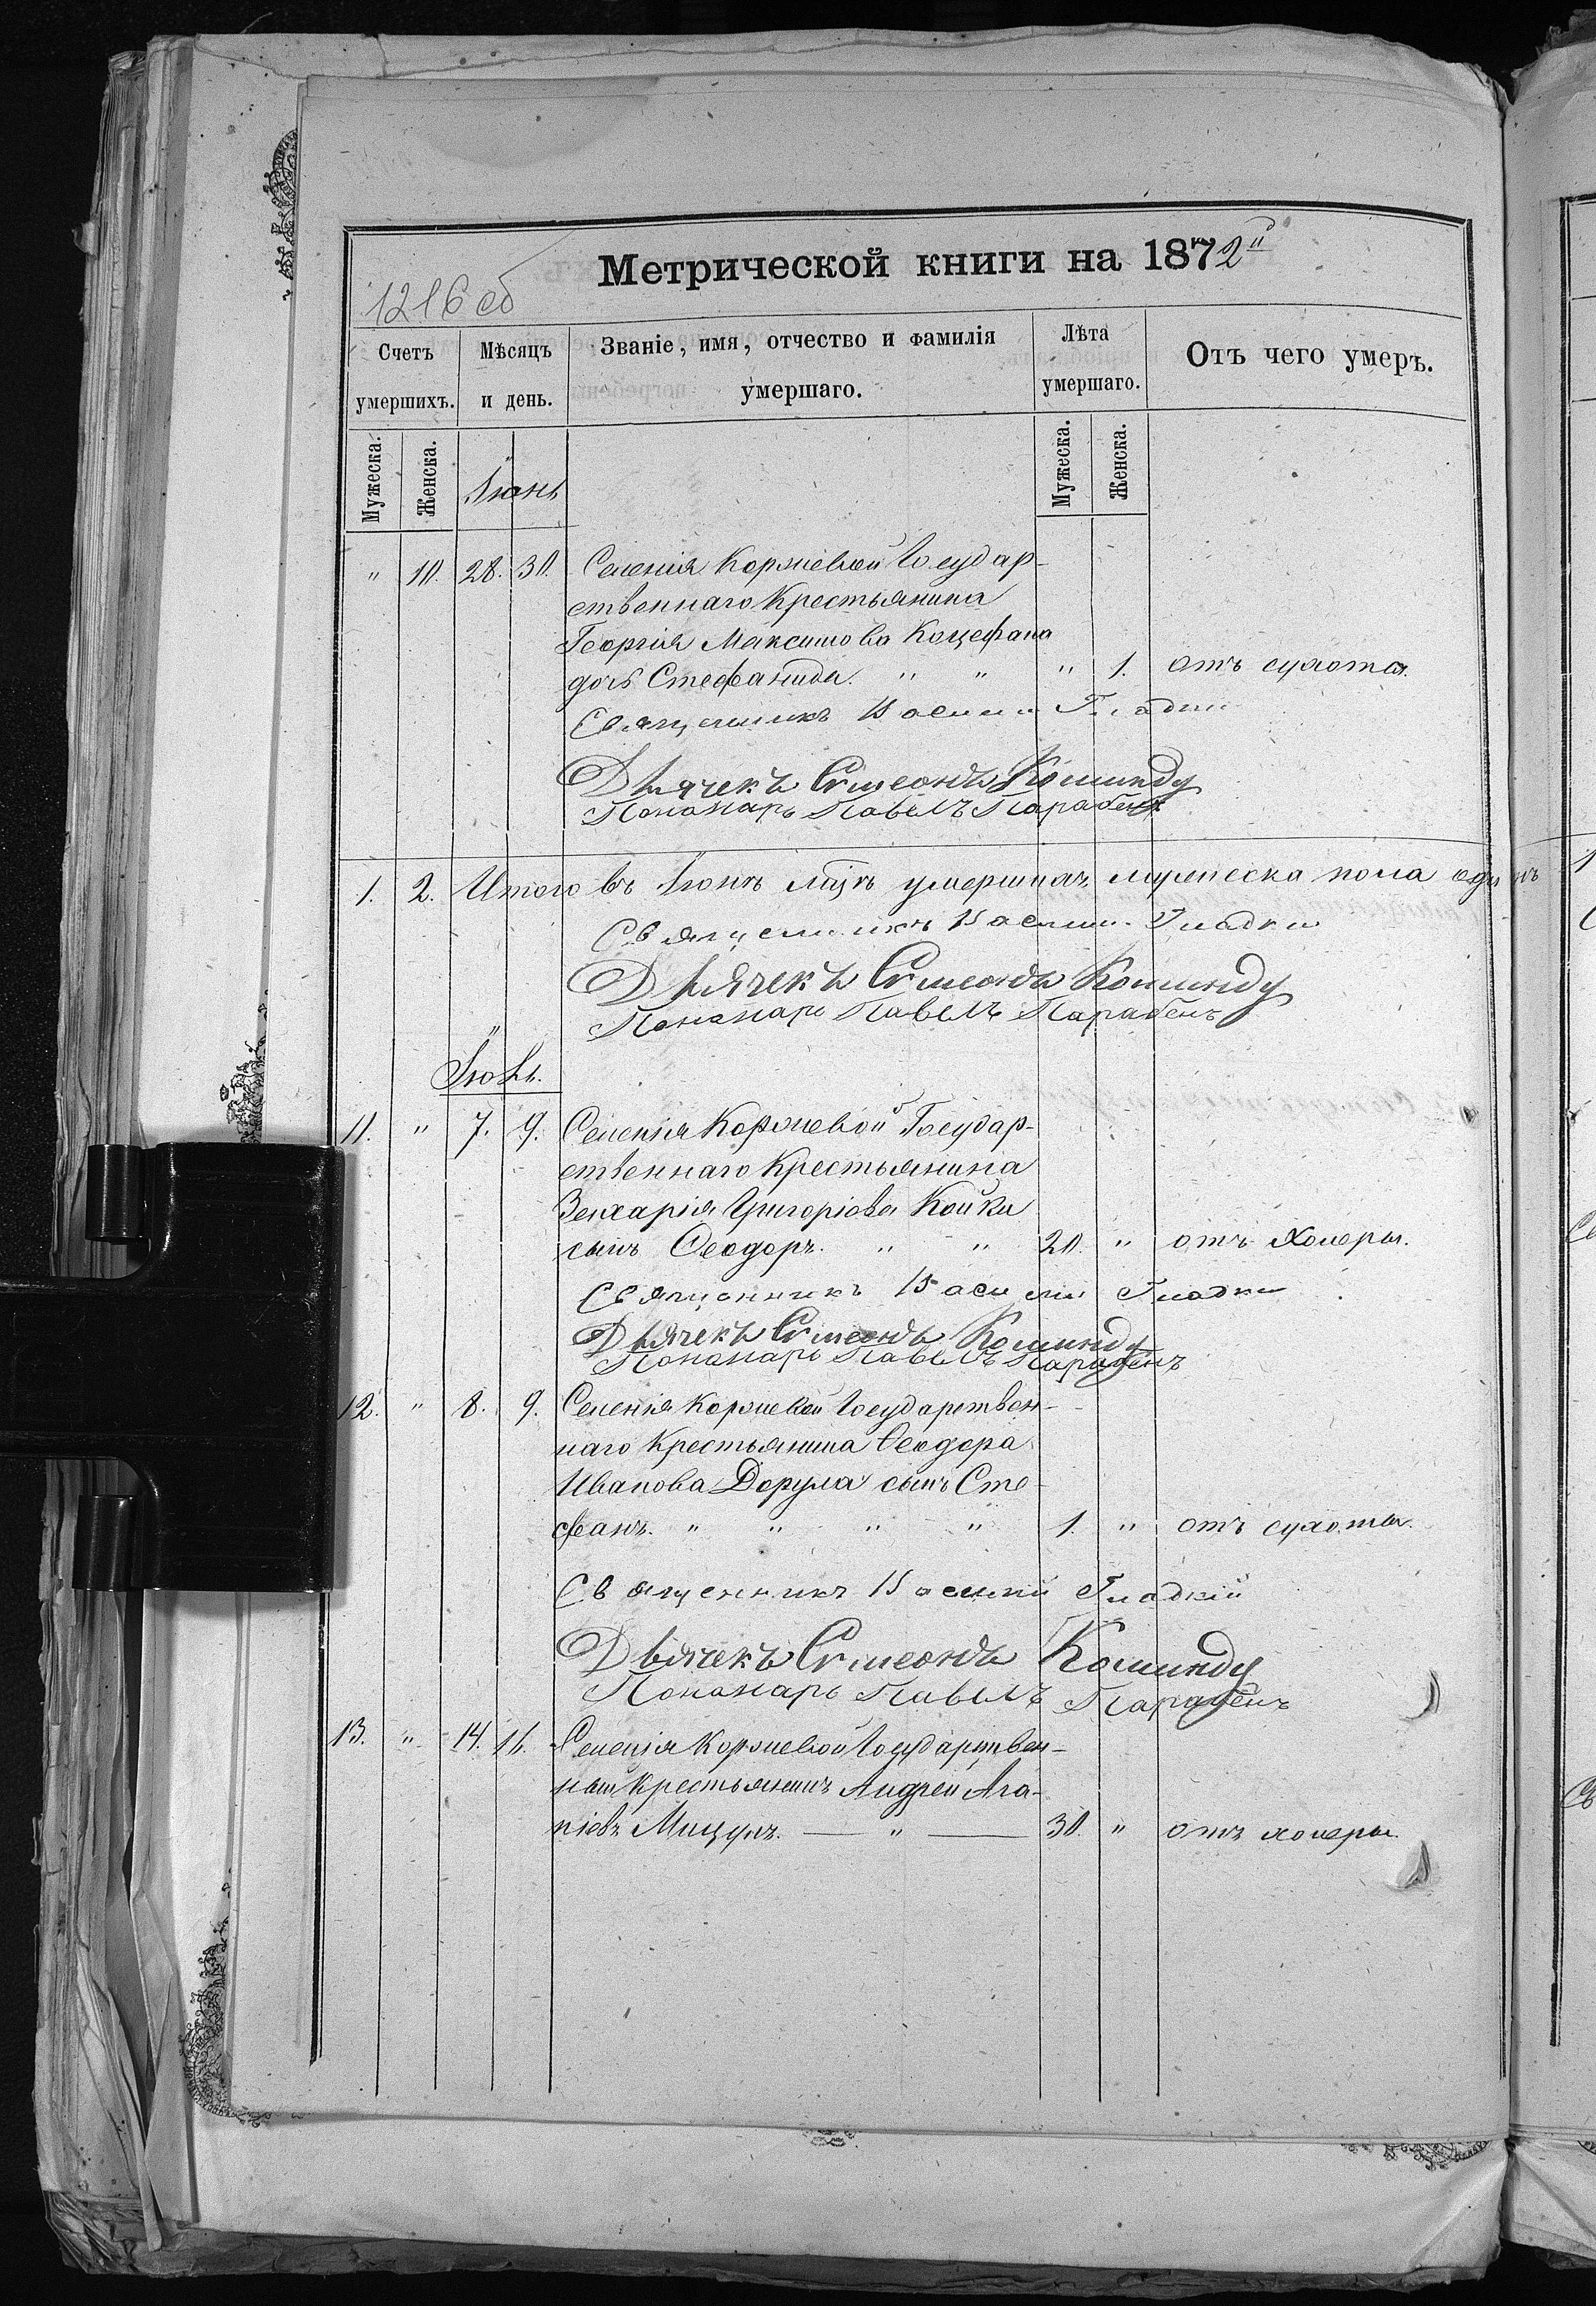 Метрической книги на 1872й
1216 об
Счетъ умершихъ.
Мѣсяцъ и день.
Званіе, имя, отчество и фамилія умершаго.
Лѣта умершаго.
Отъ чего умеръ.
Мужеска.
Женска.
Іюнь
Мужеска.
Женска.
" 10. 28. 30. Селенія Коржевой Государ-
ственнаго Крестьянина
Георгія Максимова Коцефана
дочь Стефанида. " " " 1. отъ сухоты.
Священникъ Василий Гладкий
Дьячекъ Симеонъ Коминду
Пономарь Павелъ Парабенъ
1. 2. Итого въ Іюнѣ мцѣ умершихъ мужеска пола одинъ
Священникъ Василий Гладкий
Дьячекъ Симеонъ Коминду
Пономарь Павелъ Парабенъ
Іюль.
11. " 7. 9. Селенія Коржевой Государ-
ственнаго Крестьянина
Захарія Григоріова Койки
сынъ Ѳеодоръ. " " 20. " отъ Холеры.
Священникъ Василий Гладкий
Дьячекъ Симеонъ Коминду
Пономарь Павелъ Парабенъ
12. " 8. 9. Селенія Коржевой Государствен-
наго Крестьянина Ѳеодора
Иванова Дорула сынъ Сте-
фанъ. " " " " 1. " отъ сухоты.
Священникъ Василий Гладкій
Дьячекъ Симеонъ Коминду
Пономарь Павелъ Парабенъ
13. " 14. 16. Селенія Коржевой Государствен-
ный Крестьянинъ Андрей Ага-
піевъ Мицулъ. — " — 30. " отъ холеры.